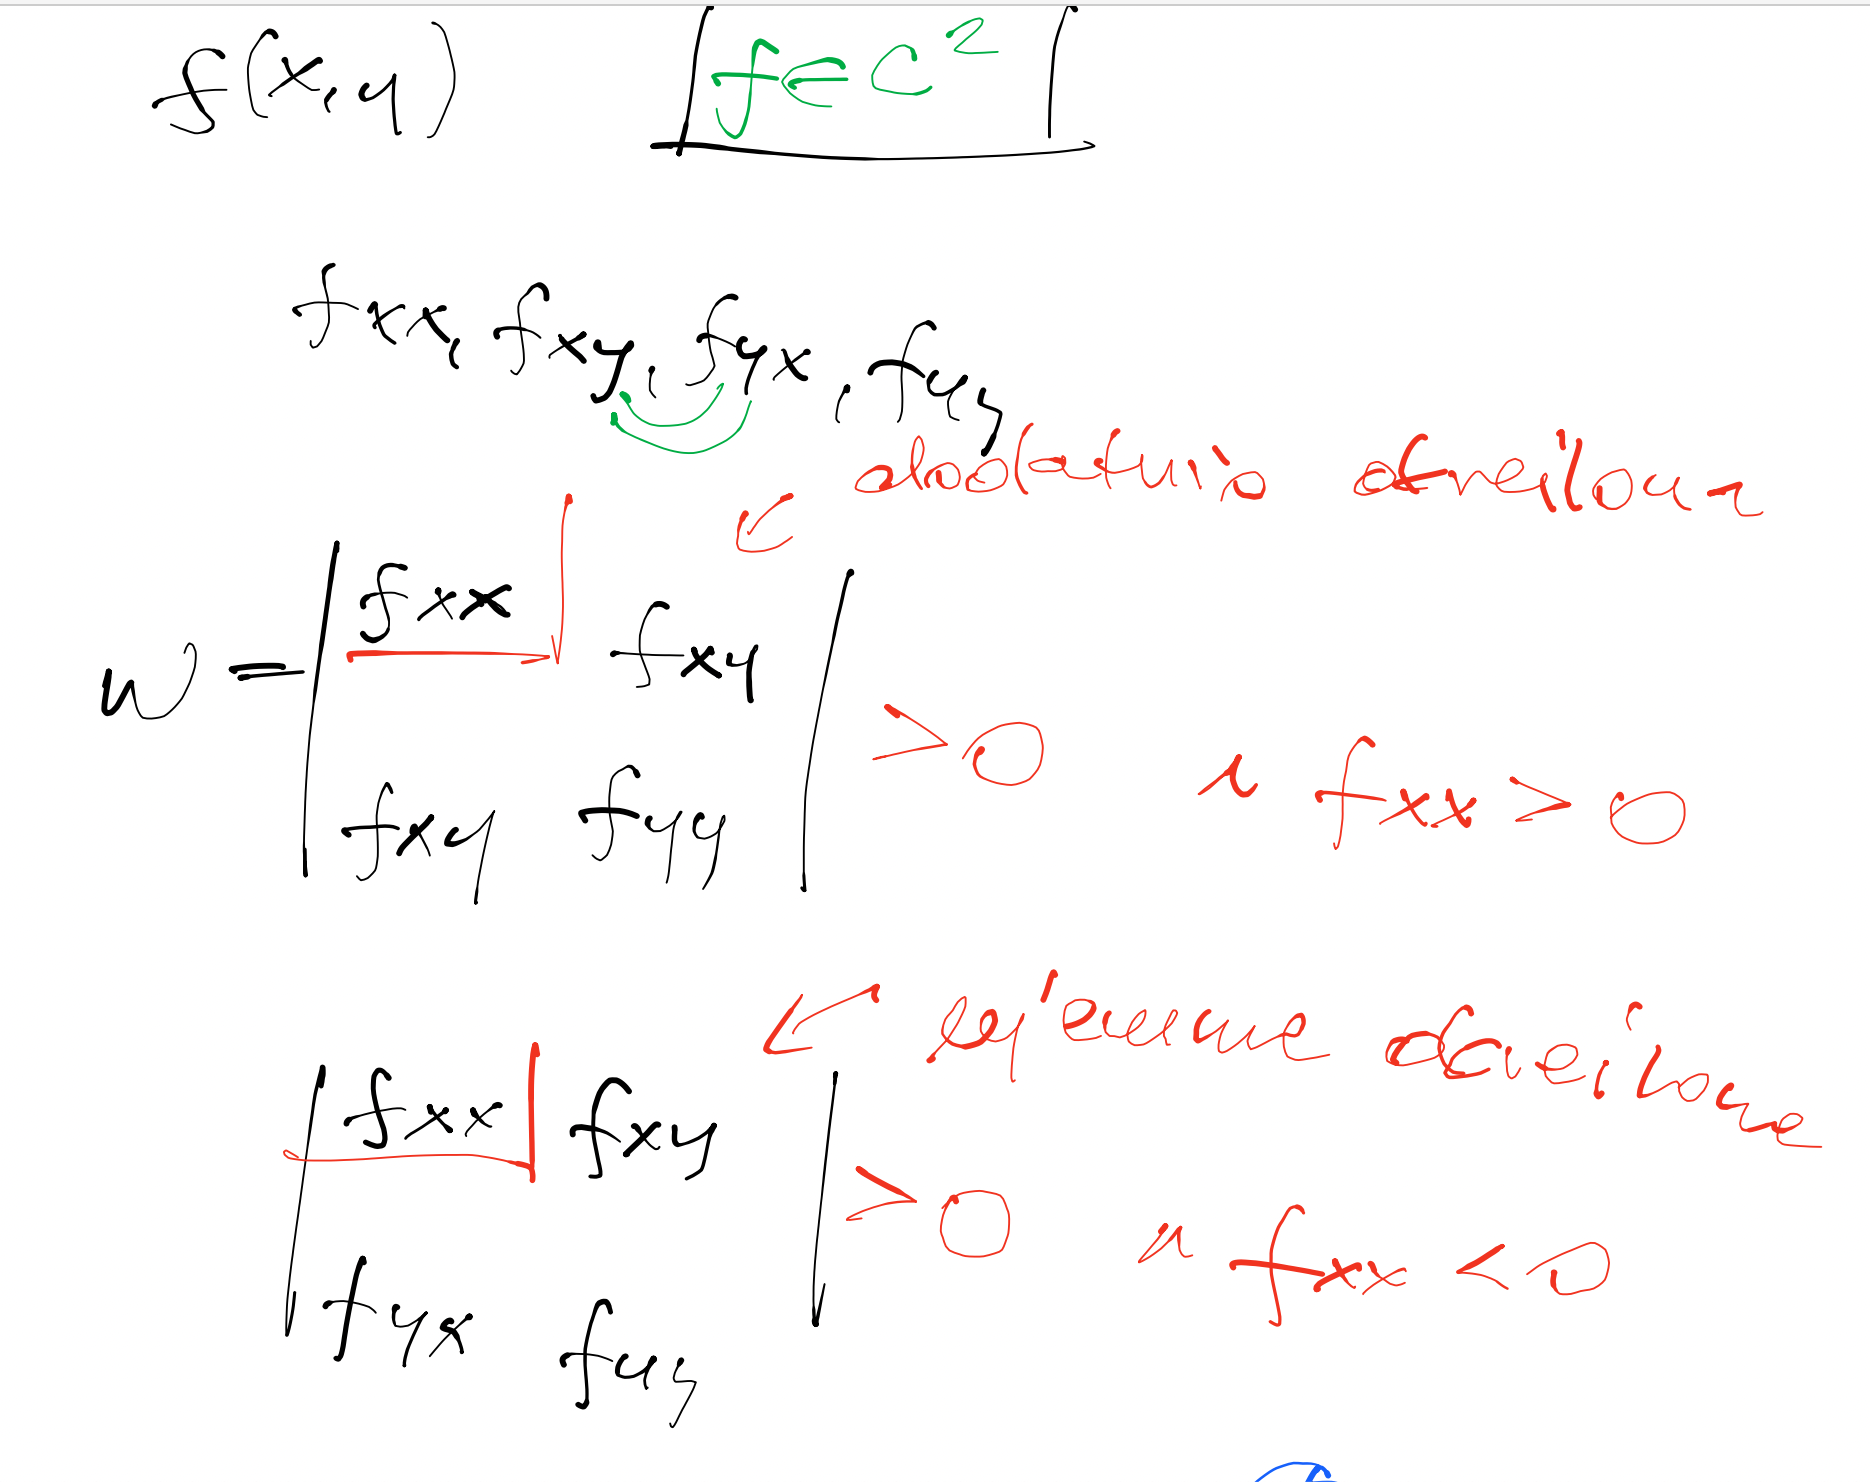 f(x,y) f ∈ C²
fxx, fxy, fyx, fyy
dodatnio określona
w = | fxx fxy |
| fxy fyy | > 0 i fxx > 0
ujemnie określona
| fxx fxy |
| fyx fyy | > 0 i fxx < 0